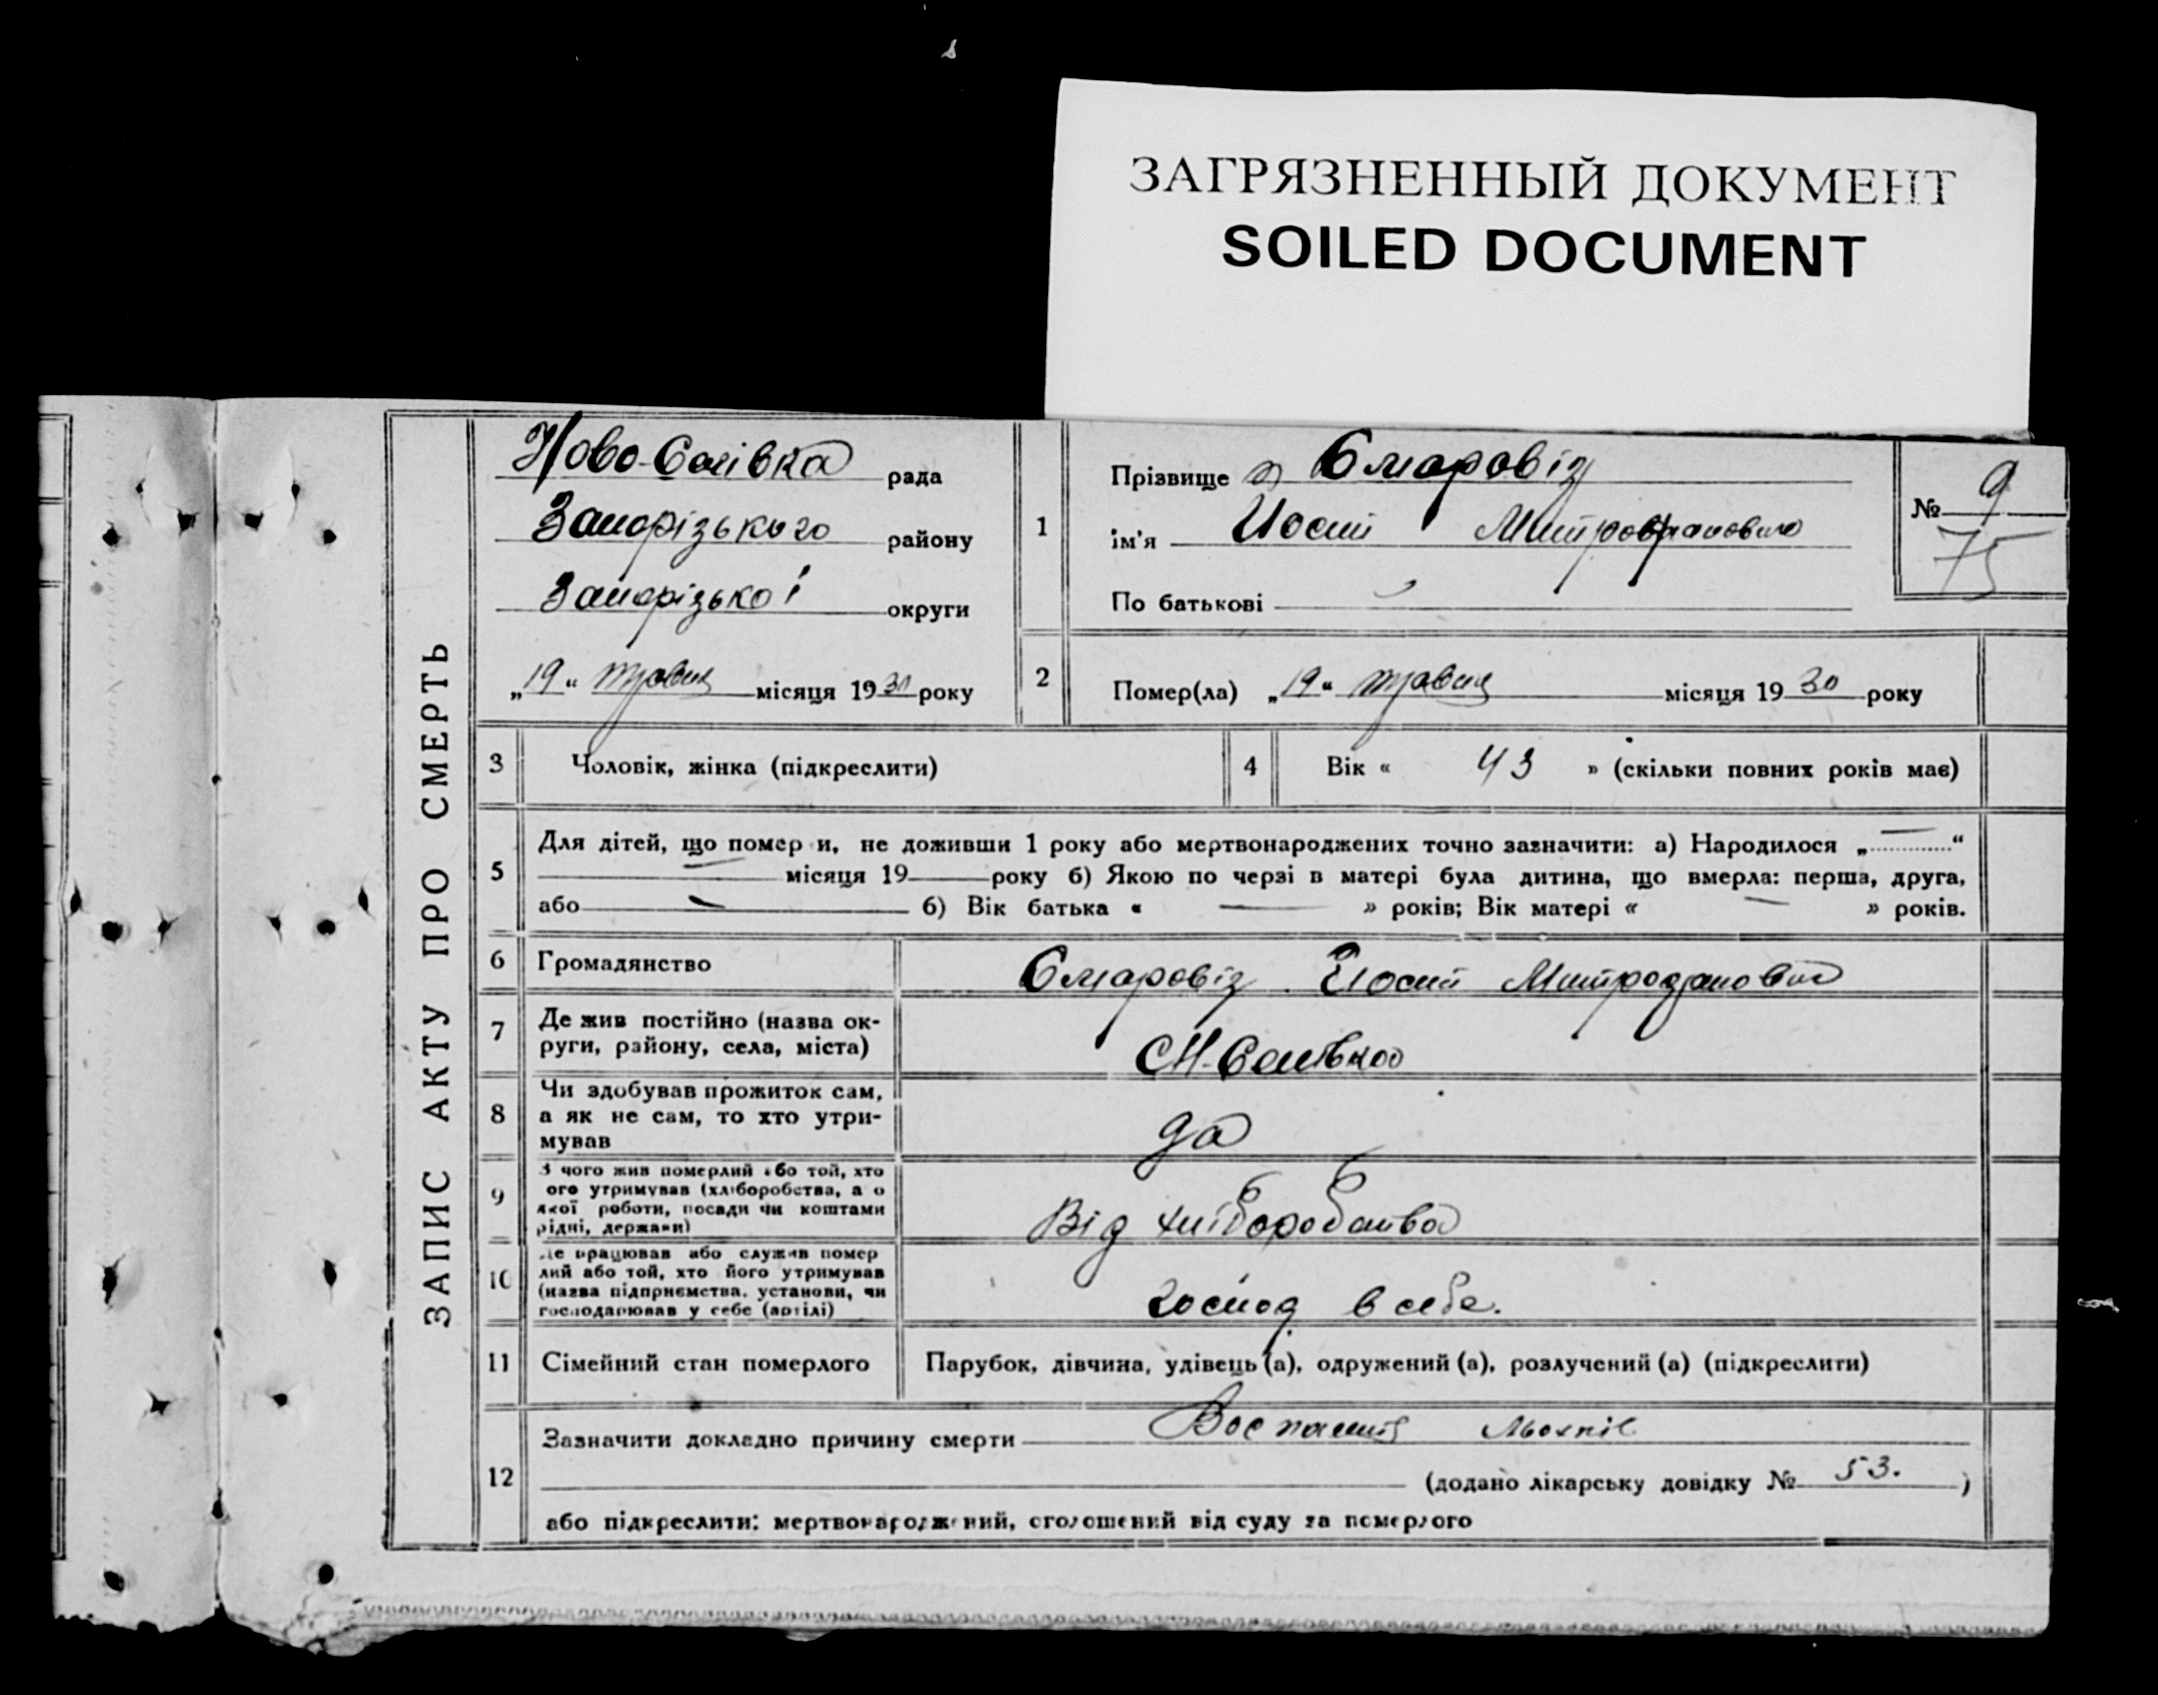 ЗАГРЯЗНЕННЫЙ ДОКУМЕНТ
SOILED DOCUMENT
ЗАПИС АКТУ ПРО СМЕРТЬ
рада
Запорізького району
Запорізької округи
„19“ травня місяця 1930 року
1
Прізвище
ім'я Йосип Митрофанович
По батькові
№ 9
75
2
Помер(ла) „19“ травня місяця 1930 року
3 Чоловік, жінка (підкреслити)
4 Вік « 43 » (скільки повних років має)
5
Для дітей, що помер и, не доживши 1 року або мертвонароджених точно зазначити: а) Народилося „ “
місяця 19 року б) Якою по черзі в матері була дитина, що вмерла: перша, друга,
або б) Вік батька « » років; Вік матері « » років.
6 Громадянство Йосип Митрофанович
7 Де жив постійно (назва ок-
руги, району, села, міста)
8 Чи здобував прожиток сам,
а як не сам, то хто утри-
мував
да
9 З чого жив померлий або той, хто
ого утримував (хліборобства, а о
якої роботи, посади чи коштами
рідні, держави)
Від хліборобства
10 Де працював або служив помер
лий або той, хто його утримував
(назва підприємства, установи, чи
господарював у себе (артілі)
господ в себе.
11 Сімейний стан померлого Парубок, дівчина, удівець (а), одружений (а), розлучений (а) (підкреслити)
12
Зазначити докладно причину смерти
(додано лікарську довідку № 53. )
або підкреслити: мертвонароджений, оголошений від суду за померлого